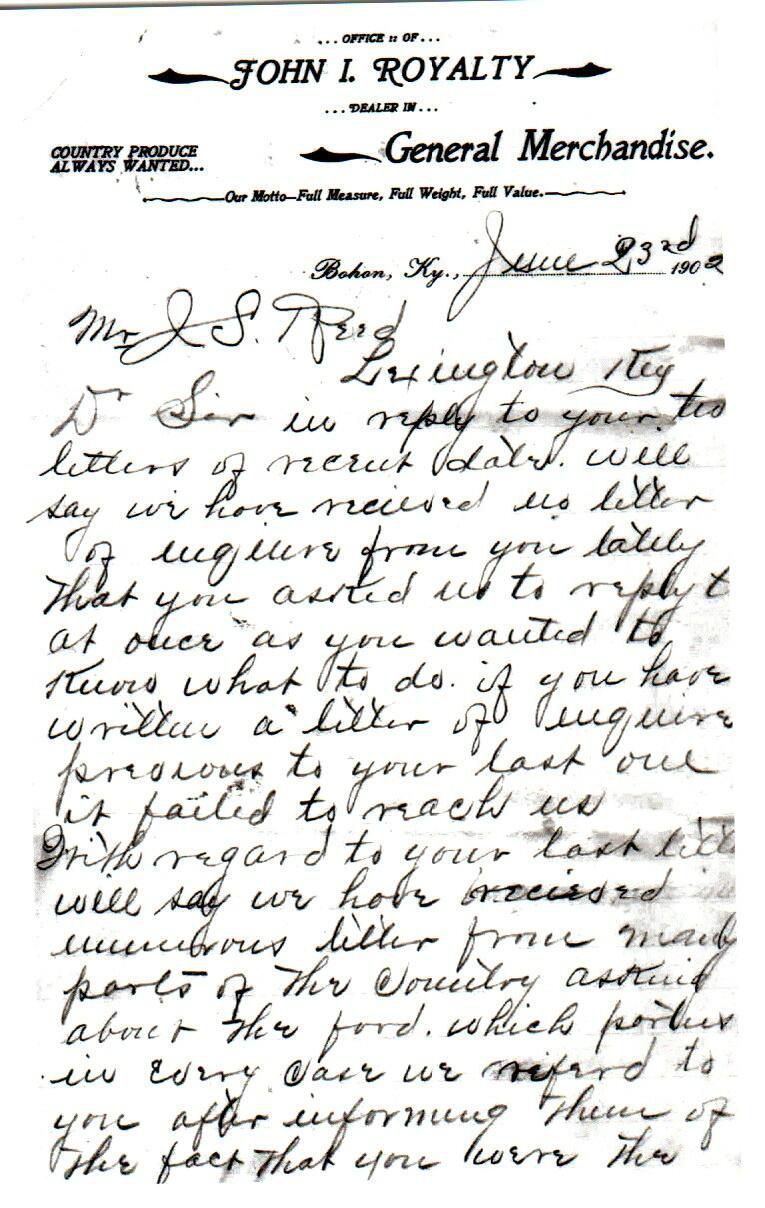 ... OFFICE :: OF ...
JOHN I. ROYALTY
... DEALER IN ...
COUNTRY PRODUCE
ALWAYS WANTED...
General Merchandise.
Our Motto—Full Measure, Full Weight, Full Value.
Bohon, Ky., June 23rd 1902
Mr J S. Reed
Lexington Ky
Dr Sir in reply to your two
letters of recent date. will
say we have recieved no letter
of enquire from you lately
that you asked us to reply t
at once as you wanted to
know what to do. if you have
written a letter of enquire
previous to your last one
it failed to reach us
With regard to your last lett
will say we have recieved
numerous letter from many
parts of the Country asking
about the ford. which parties
in every case we referd to
you after informing them of
the fact that you were the